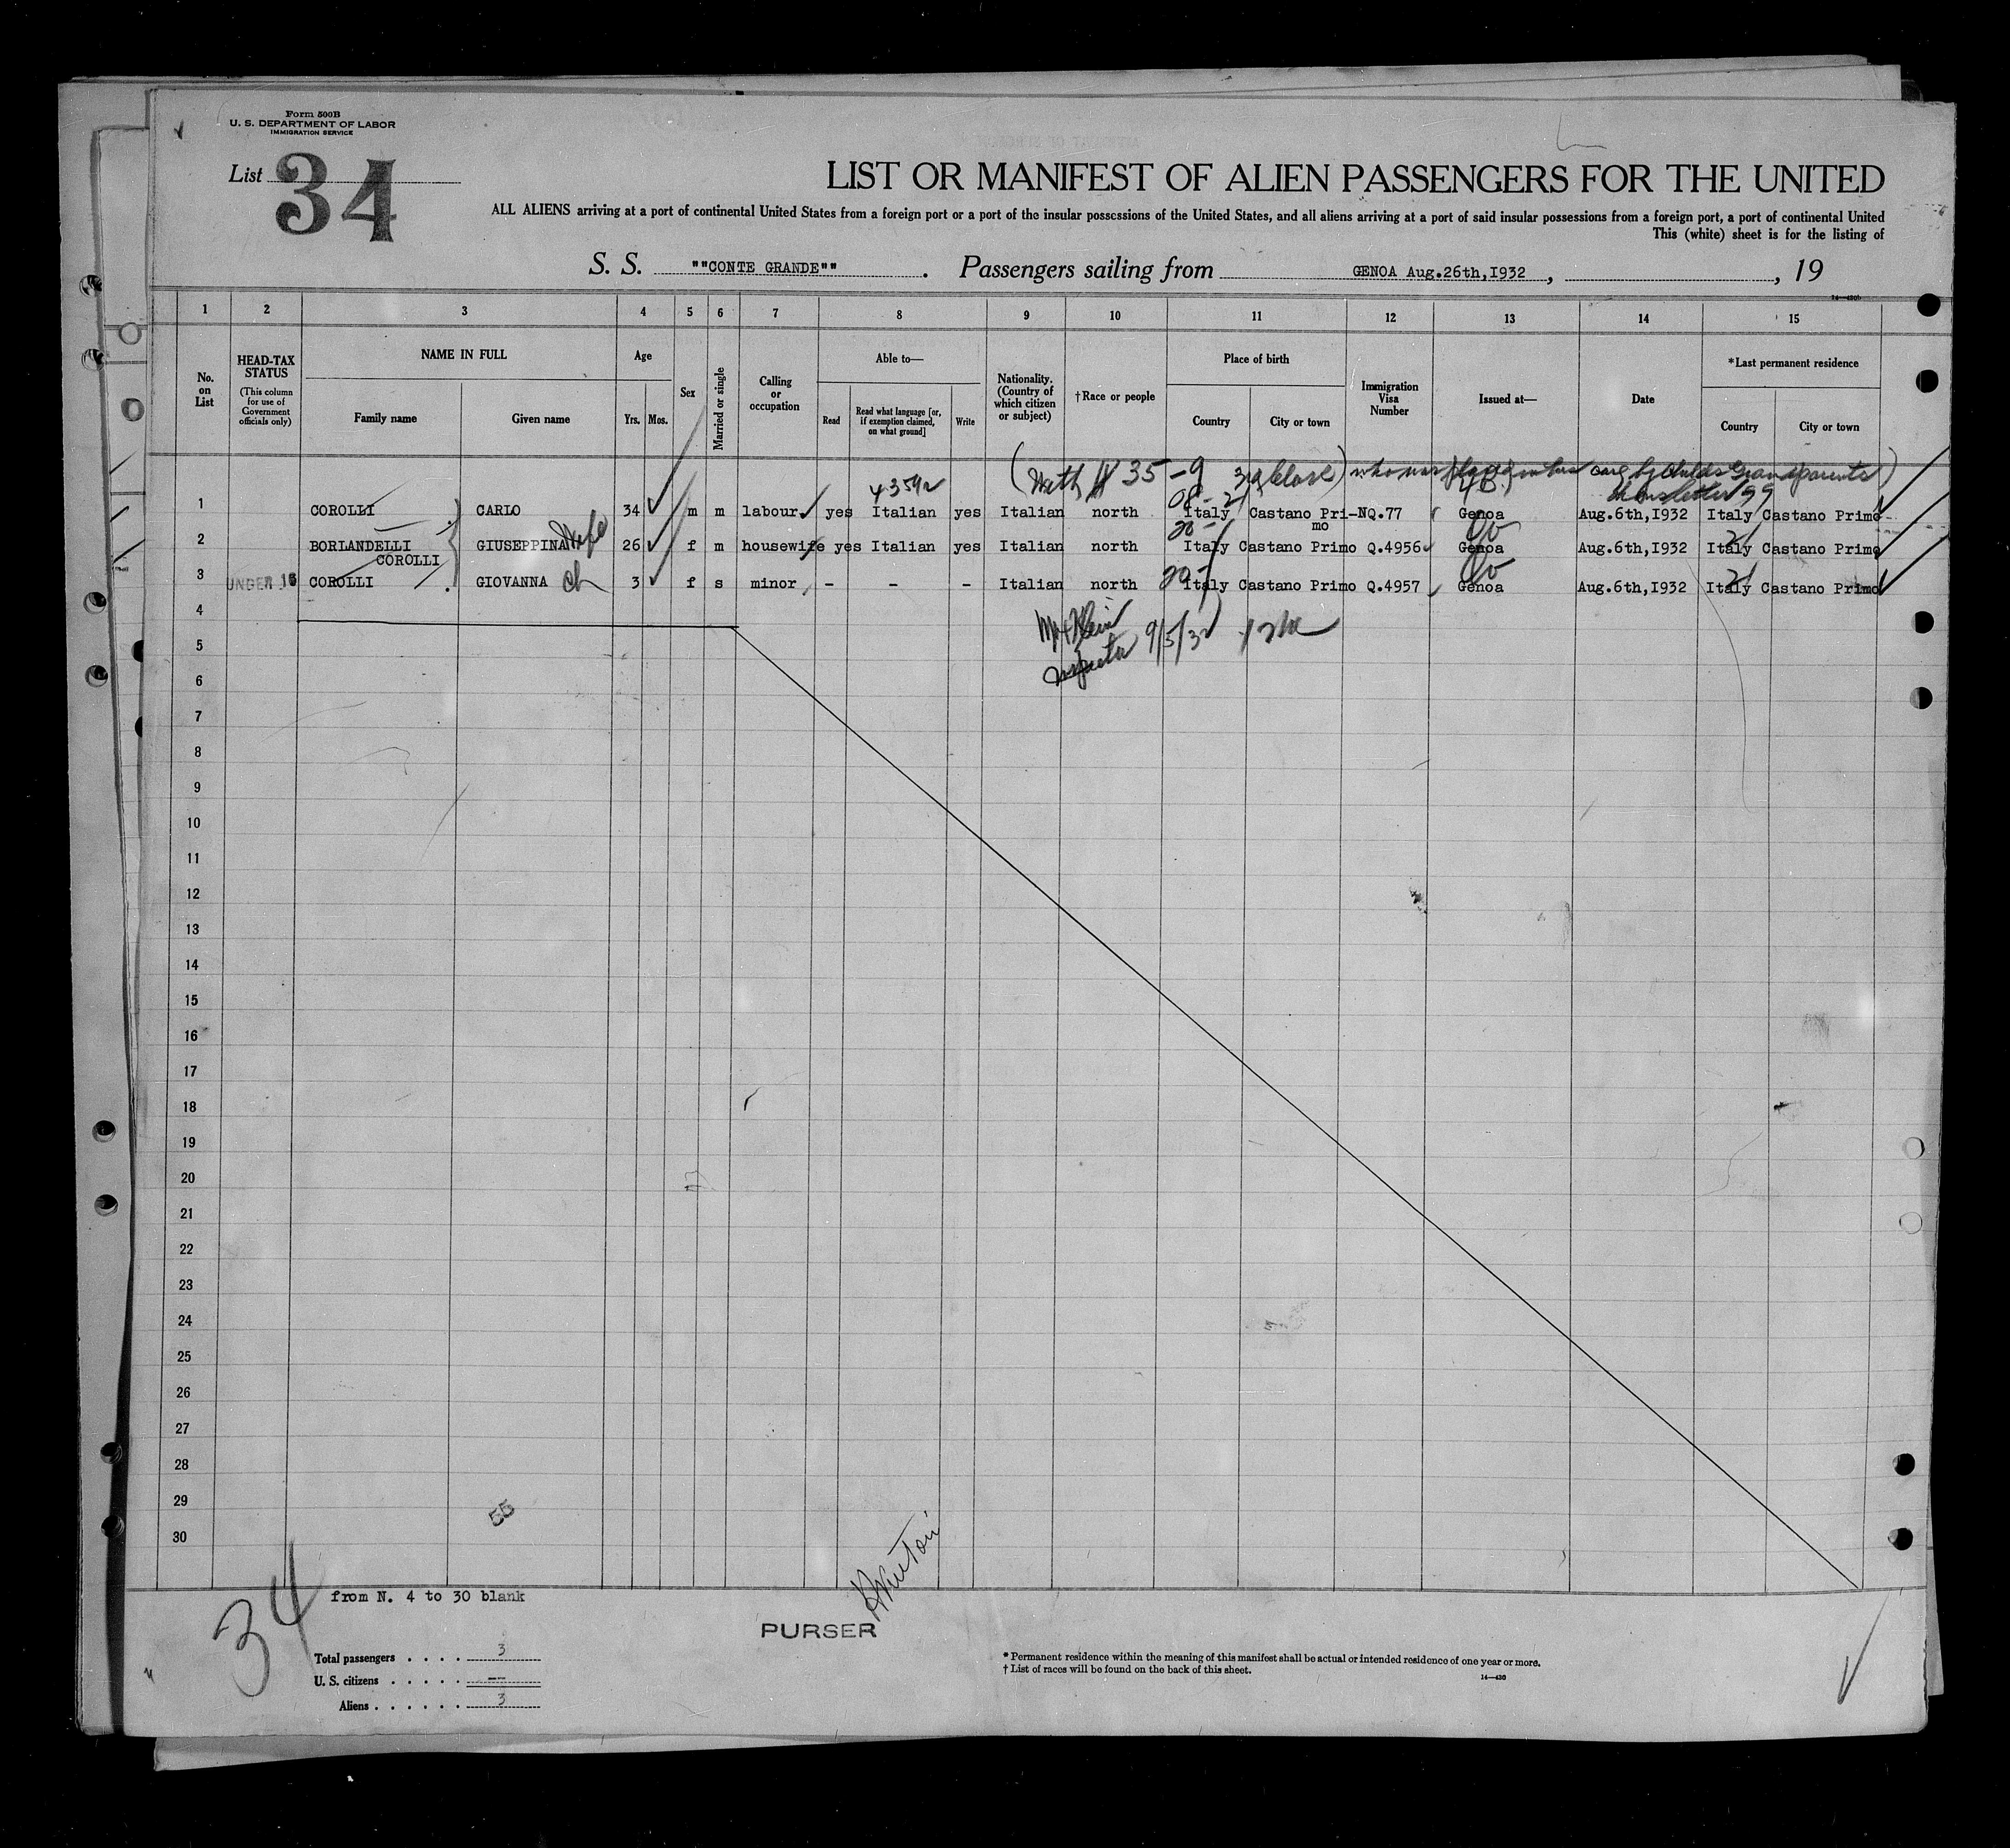 Form 500B
U. S. DEPARTMENT OF LABOR
IMMIGRATION SERVICE
List 34
LIST OR MANIFEST OF ALIEN PASSENGERS FOR THE UNITED
ALL ALIENS arriving at a port of continental United States from a foreign port or a port of the insular possessions of the United States, and all aliens arriving at a port of said insular possessions from a foreign port, a port of continental United
This (white) sheet is for the listing of
S. S. ""CONTE GRANDE"" . Passengers sailing from GENOA Aug.26th,I932 , , 19
14—430b
1 2 3 4 5 6 7 8 9 10 11 12 13 14 15
No. on List
HEAD-TAX STATUS
(This column for use of Government officials only)
NAME IN FULL
Family name Given name
Age
Yrs. Mos.
Sex
Married or single
Calling or occupation
Able to—
Read
Read what language [or, if exemption claimed, on what ground]
Write
Nationality. (Country of which citizen or subject)
†Race or people
Place of birth
Country City or town
Immigration Visa Number
Issued at—
Date
*Last permanent residence
Country City or town
(With # 35-9 3rd Class) who was placed in her care by childs Grandparents)
1 COROLLI CARLO 34 m m labour. yes Italian yes Italian north Italy Castano Pri-NQ.77 Genoa Aug.6th,I932 Italy Castano Primo
mo
2 BORLANDELLI GIUSEPPINA wife 26 f m housewife yes Italian yes Italian north Italy Castano Primo Q.4956 Genoa Aug.6th,I932 Italy Castano Primo
COROLLI
3 UNDER 16 COROLLI GIOVANNA ch 3 f s minor - - - Italian north Italy Castano Primo Q.4957 Genoa Aug.6th,I932 Italy Castano Primo
4
Inspector 9/5/32
5
6
7
8
9
10
11
12
13
14
15
16
17
18
19
20
21
22
23
24
25
26
27
28
29
30
55
34
from N. 4 to 30 blank
PURSER
Total passengers . . . . 3
U. S. citizens . . . . . --
Aliens . . . . . . 3
* Permanent residence within the meaning of this manifest shall be actual or intended residence of one year or more.
† List of races will be found on the back of this sheet.
14—430